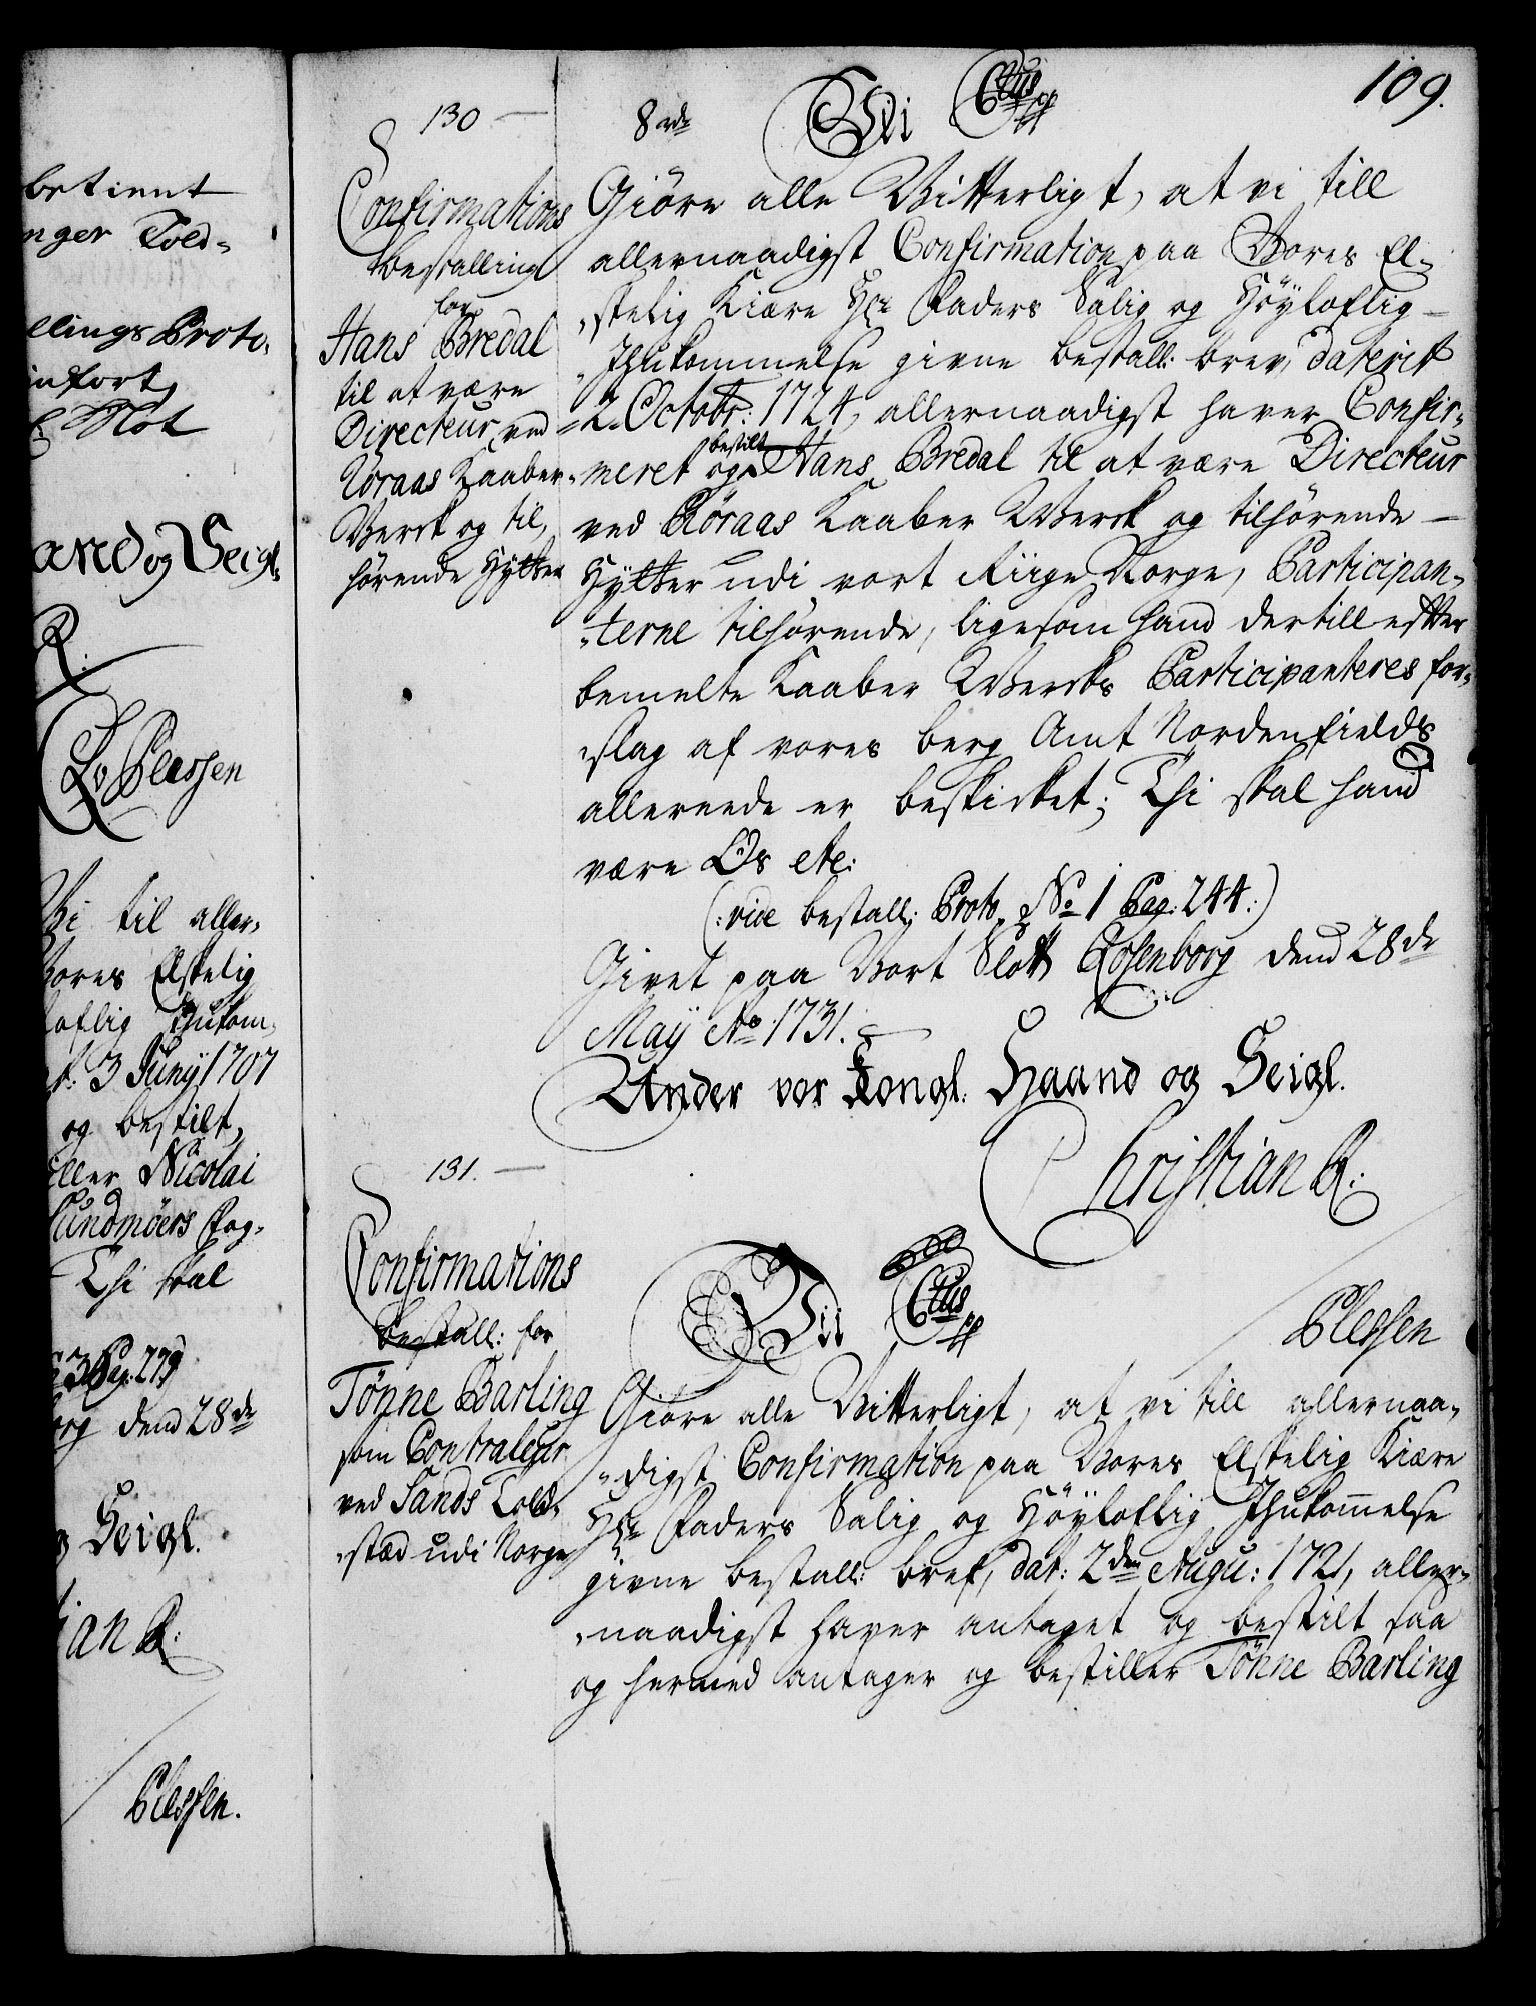 109.
betient
nger Told-
llings Proto,
infort,
Not
aand og Seigl.
R.
Plessen
Vi til aller-
Vores Elskelig
loflig Ihukom-
3 Junij 1707
og bestilt,
iller Nicolai
Sundmöers Fog-
Thi skal
Pag: 279
org dend 28de
Seigl.
ian R:
Plessen.
130
Confirmations
bestalling
for
Hans Bredal
til at være
Directeur ved
Röraas Kaaber
Verck og til,
hørende Hytter
8de Vii Ctus pp
Giöre alle Vitterligt, at vi till
allernaadigst Confirmation paa Vores El-
skelig Kiære Hr Faders Salig og Höyloflig
Ihukommelse givne bestall: brev, daterit
2. Octobr: 1724, allernaadigst haver Confir-
meret og bestilt Hans Bredal til at være Directeur
ved Röraas Kaaber Werck og tilhörende
Hytter udi vort Riige Norge, Participan-
terne tilhörende, ligesom hand dertill efter
bemelte Kaaber Wercks Participanteres for-
slag af vores berg Amt Nordenfields
allerede er beskicket; Thi skal hand
være Os etc:
(: vide bestall: Proto, No 1 Pag: 244. :)
Givet paa Vort Slott Rosenborg dend 28de
May Ao 1731.
Under vor Kongl: Haand og Seigl.
Christian R:
Plessen
131.
Confirmations
bestall: for
Tönne Barling
som Contraleur
ved Sands Told-
stæd udi Norge
Vii Ctus pp
Giöre alle Vitterligt, at vi till allernaa-
digst Confirmation paa Vores Elskelig Kiære
Hr Faders Salig og Höyloflig Ihukom̄else
givne bestall: bref, dat: 2den Augu: 1721, aller-
naadigst haver antaget og bestilt saa
og hermed antager og bestiller Tönne Barling